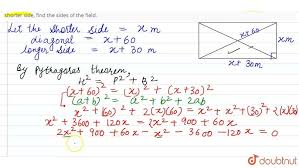 shorter side, find the sides of the field.
Let the shorter side = x m
diagonal = x+60
longer side = x+30 m
x+60
x m
x+30m
By Pythagoras theorem,
H² = P² + B²
(x+60)² = (x)² + (x+30)²
(a+b)² = a² + b² + 2ab
x² + (60)² + 2(x)(60) = x² + x² + (30)² + 2(x)(30)
x² + 3600 + 120x = 2x² + 900 + 60x
2x² + 900 + 60x - x² - 3600 - 120x = 0
doubtnut